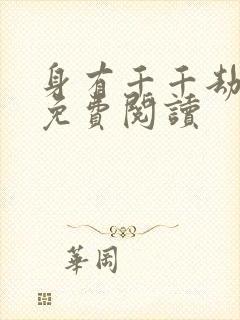 身有千千劫
免費閱讀
華岡